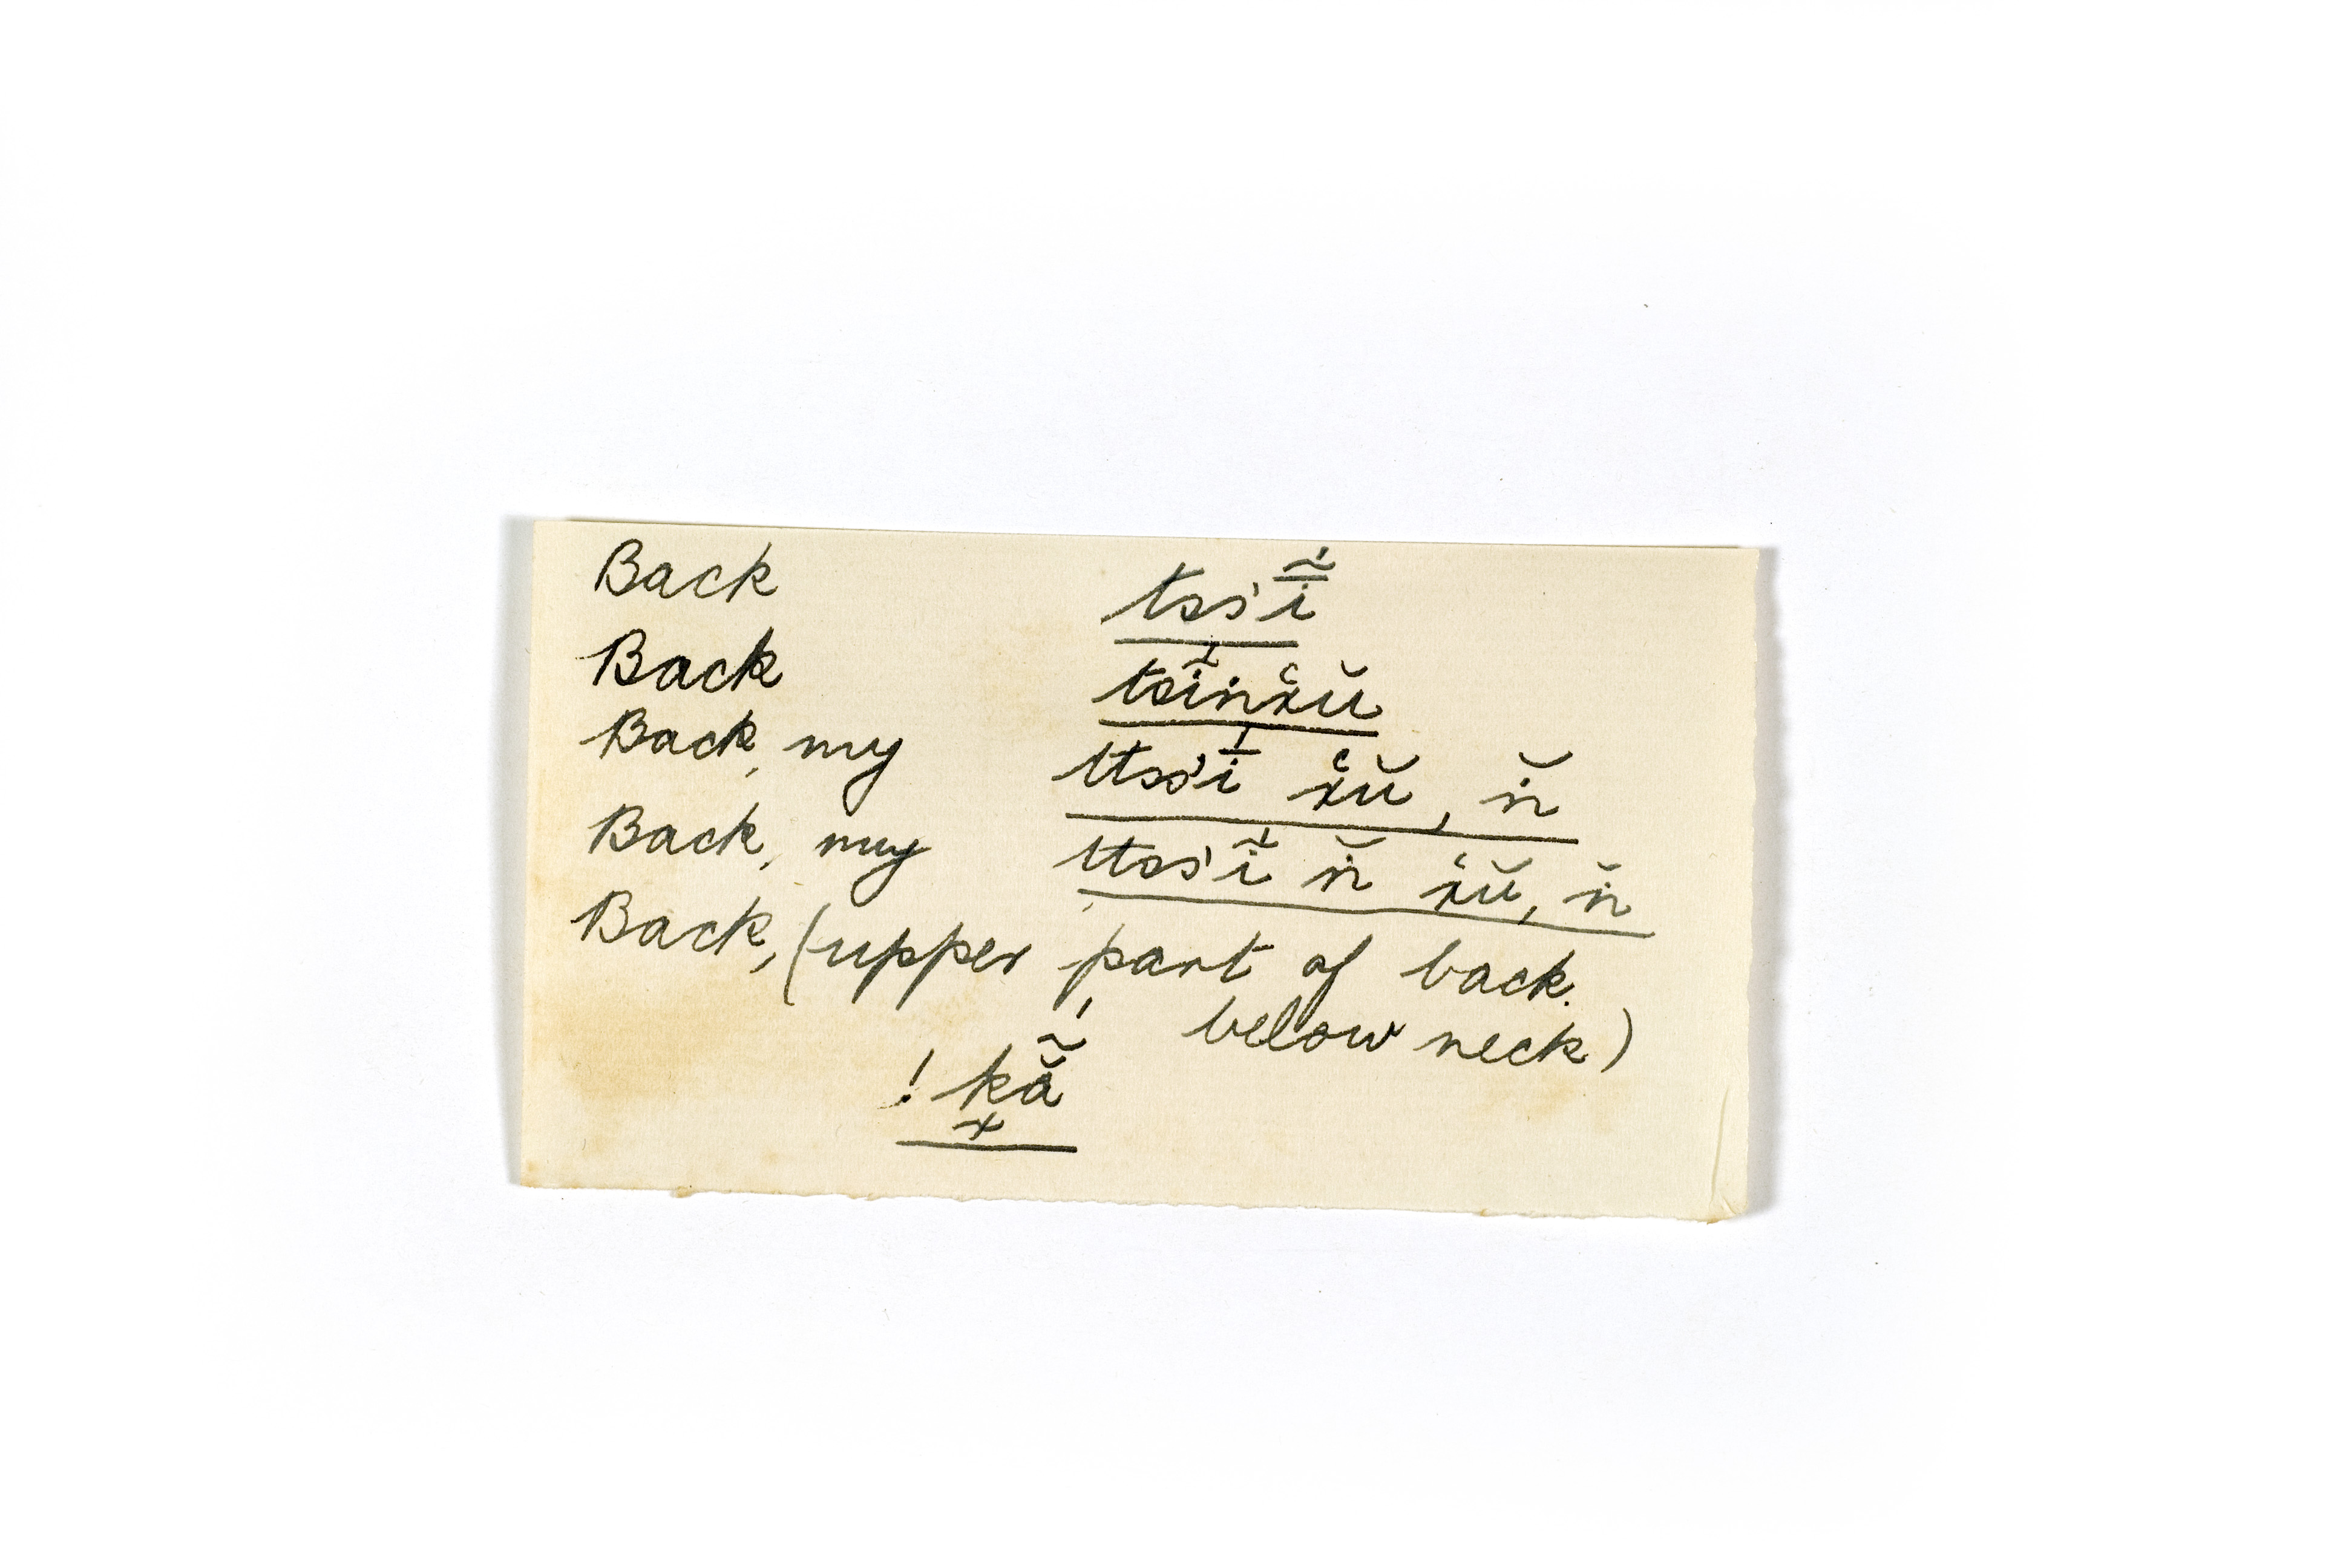 Back tss'ī̃́
Back tsĩ́ṅẋŭ
Back, my ttss'ī́ ẋŭ, ṅ̆
Back, my ttss'ĩ́ ṅ̆ ẋŭ, ṅ̆
Back, (upper part of back.
below neck)
! k͓ã́